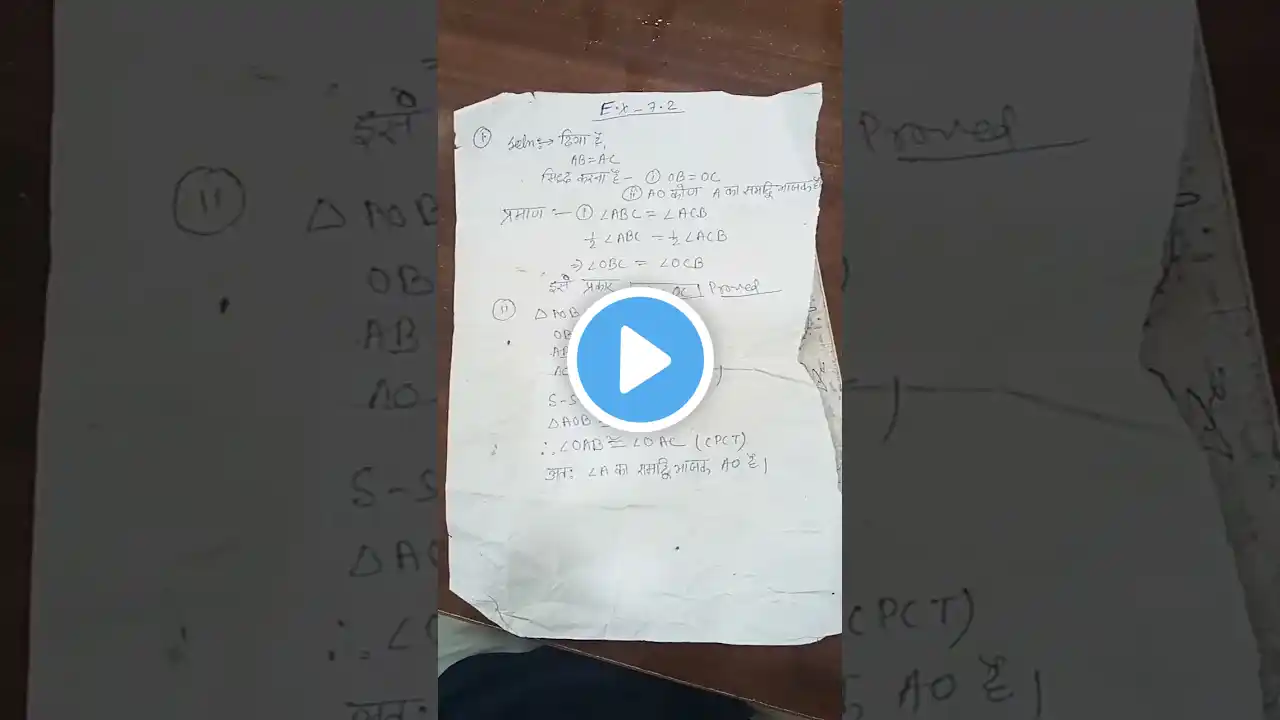 Ex-7.2
① Soln:→ दिया है,
AB=AC
सिद्ध करना है- ① OB=OC
② AO कोण A का समद्विभाजक है
प्रमाण :- ① ∠ABC = ∠ACB
½ ∠ABC = ½ ∠ACB
⇒ ∠OBC = ∠OCB
इसी प्रकार OC Proved
⑪ △AOB
OB
AB
AO
S-S
△AOB
∴ ∠OAB ≅ ∠OAC (CPCT)
अतः ∠A का समद्विभाजक AO है|